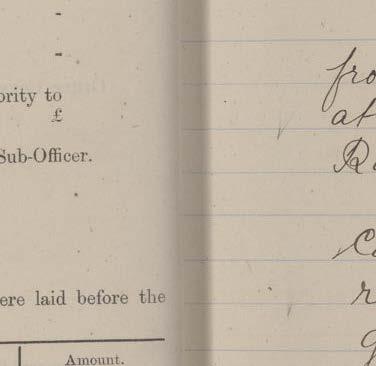 -
-
ority to
£
Sub-Officer.
ere laid before the
Amount.
fro
at